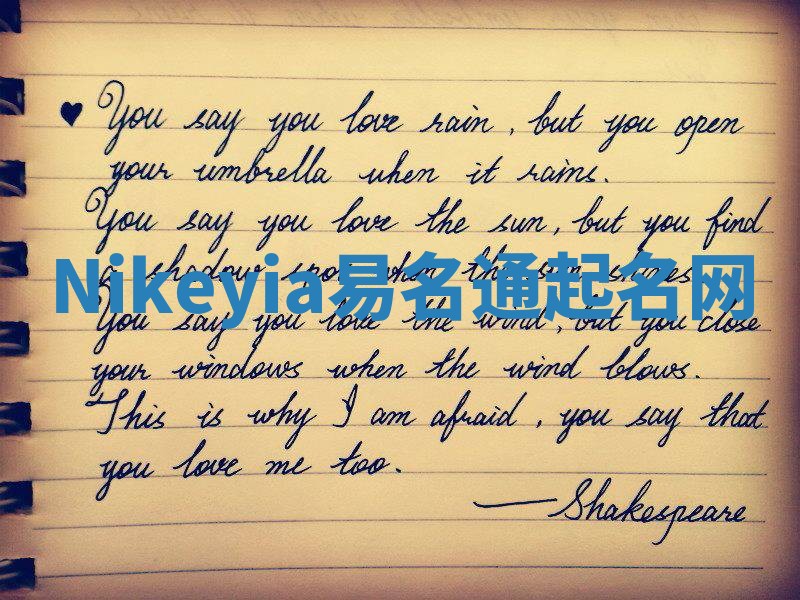 ♥ You say you love rain, but you open
your umbrella when it rains.
You say you love the sun, but you find
a shadow spot when the sun shines
Nikeyia易名通起名网
You say you love the wind, but you close
your windows when the wind blows.
This is why I am afraid, you say that
you love me too.
— Shakespeare